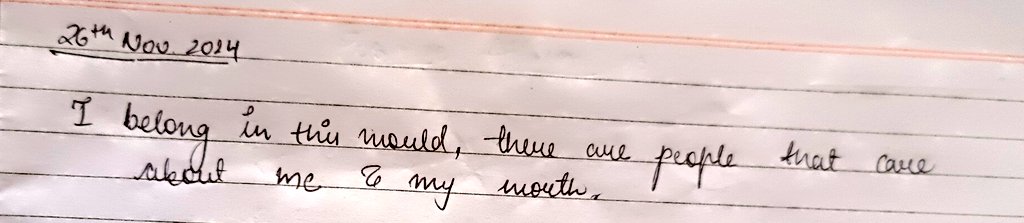 26th Nov. 2014
I belong in this world, there are people that care
about me & my worth.